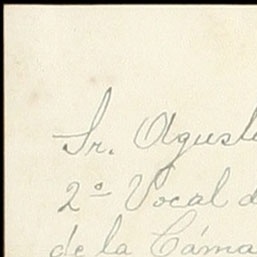 Sr. Agust
2º Vocal d
de la Cáma